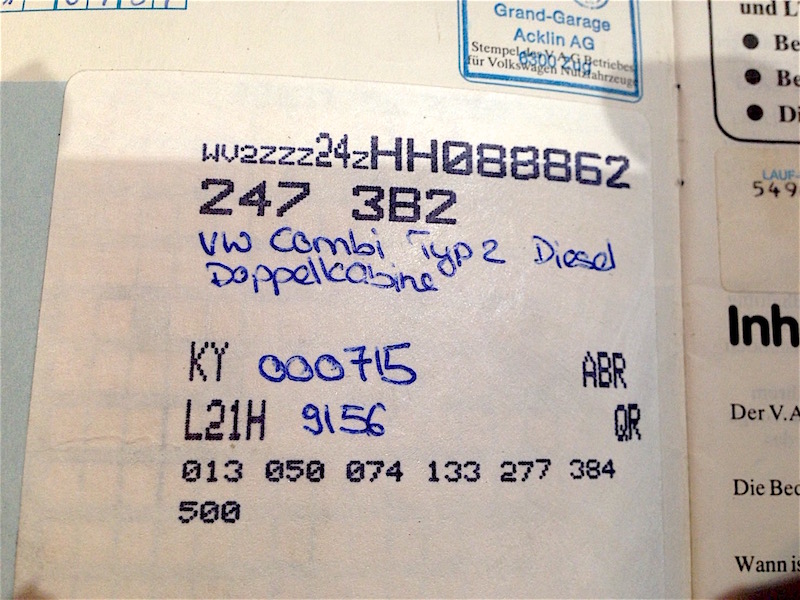 Grand-Garage
Acklin AG
6300 Zug
Stempel des V.A.G Betriebes
für Volkswagen Nutzfahrzeuge
WV2ZZZ24ZHH088862
247 3B2
VW Combi Typ 2 Diesel
Doppelkabine
KY 000715 ABR
L21H 9156 QR
013 050 074 133 277 384
500
und L
Be
Be
Di
LAUF-
549
Inh
Der V.A
Die Bed
Wann is